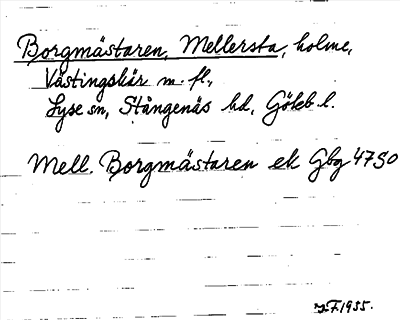 Borgmästaren, Mellersta, holme,
Västingskär m. fl.,
Lyse sn, Stångenäs hd, Göteb l.
Mell. Borgmästaren ek Gbg 4750
1955.